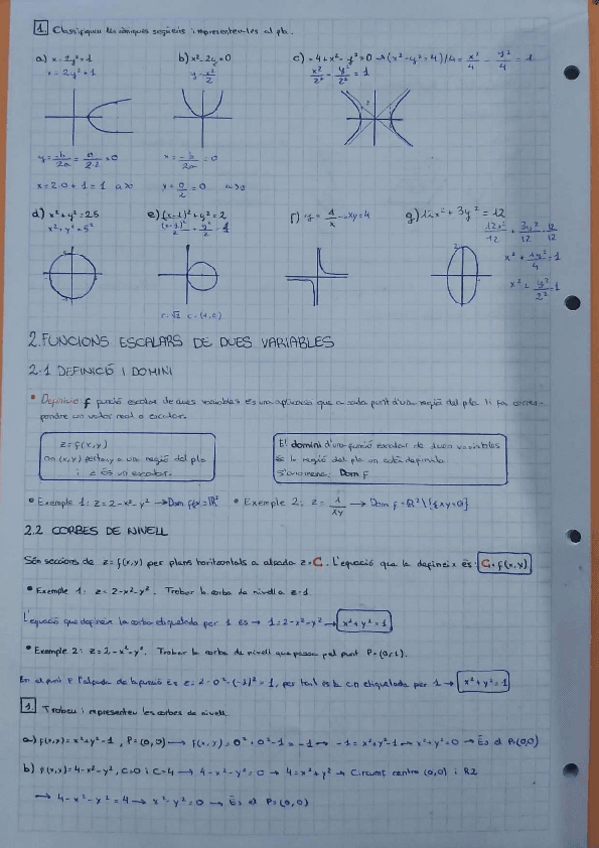 1. Classifiqueu les còniques següents i representeu-les al pla.
a) x - 2y² = 1 b) x² - 2y = 0 c) -4 + x² - y² = 0 → (x² - y² = 4)/4 = x²/4 - y²/4 = 1
x = 2y² + 1 y = x²/2 x²/2² - y²/2² = 1
y = -b/2a = 0/2·2 = 0 x = -b/2a = 0
x = 2·0 + 1 = 1 a>0 y = 0/2 = 0 a>0
d) x² + y² = 25 e) (x-1)² + y² = 2 f) y = 1/x → xy = 4 g) 12x² + 3y² = 12
x² + y² = 5² (x-1)²/2 + y²/2 = 1 12x²/12 + 3y²/12 = 12/12
x² + 1y²/4 = 1
x² + y²/2² = 1
r = √2 c = (1,0)
2. FUNCIONS ESCALARS DE DUES VARIABLES
2.1 DEFINICIÓ I DOMINI
• Definició: f funció escalar de dues variables és una aplicació que a cada punt d'una regió del pla li fa corres-
pondre un valor real o escalar.
z = f(x,y)
on (x,y) pertany a una regió del pla
i z és un escalar.
El domini d'una funció escalar de dues variables
és la regió del pla on està definida.
S'anomena: Dom f
• Exemple 1: z = 2 - x² - y² → Dom f(x) = ℝ² • Exemple 2: z = 1/xy → Dom f = ℝ² \ {xy=0}
2.2 CORBES DE NIVELL
Són seccions de z = f(x,y) per plans horitzontals a alçada z = C. L'equació que la defineix és: C = f(x,y)
• Exemple 1: z = 2 - x² - y². Trobar la corba de nivell a z = 1
L'equació que defineix la corba etiquetada per 1 és → 1 = 2 - x² - y² → x² + y² = 1
• Exemple 2: z = 2 - x² - y². Trobar la corba de nivell que passa pel punt P = (0,1).
En el punt P l'alçada de la funció és z = 2 - 0² - (-1)² = 1, per tant és la c.n etiquetada per 1 → x² + y² = 1
1. Trobeu i representeu les corbes de nivell
a) f(x,y) = x² + y² - 1, P = (0,0) → f(x,y) = 0² + 0² - 1 = -1 → -1 = x² + y² - 1 → x² + y² = 0 → És el P(0,0)
b) f(x,y) = 4 - x² - y², C=0 i C=4 → 4 - x² - y² = 0 → 4 = x² + y² → Circumf centre (0,0) i R2
→ 4 - x² - y² = 4 → x² - y² = 0 → És el P = (0,0)